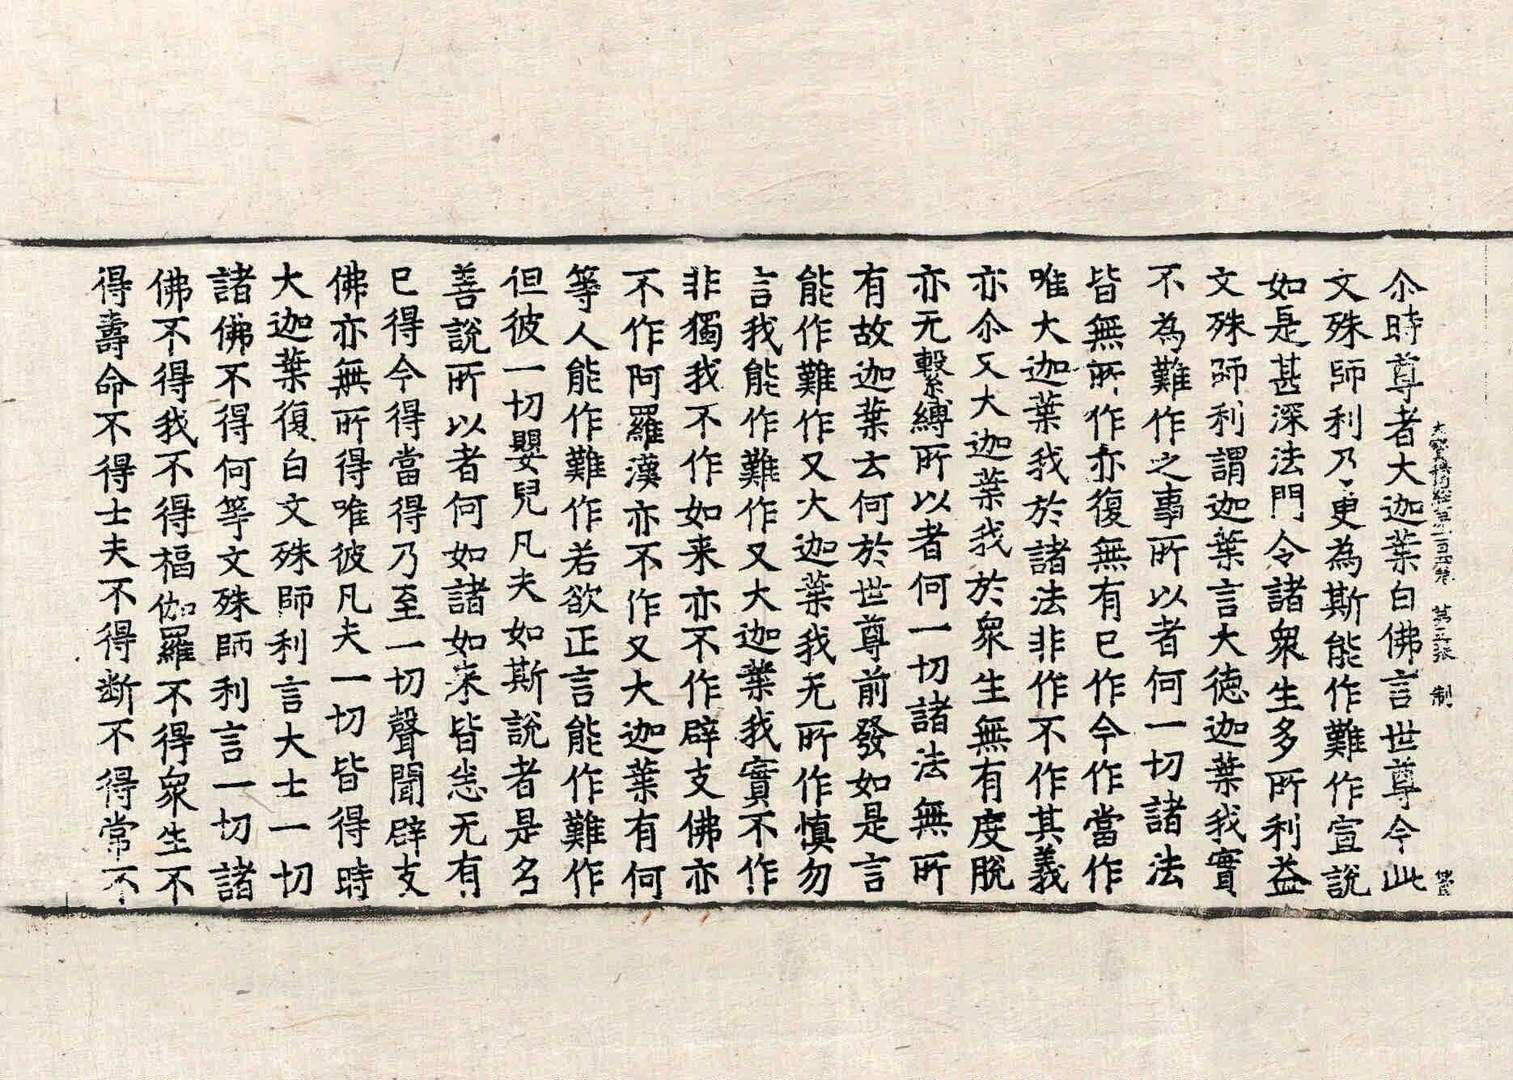 大寶積經第一百五卷 第三張 制
尒時尊者大迦葉白佛言世尊今此
文殊師利乃更為斯能作難作宣說
如是甚深法門令諸衆生多所利益
文殊師利謂迦葉言大德迦葉我實
不為難作之事所以者何一切諸法
皆無所作亦復無有已作今作當作
唯大迦葉我於諸法非作不作其義
亦尒又大迦葉我於衆生無有度脫
亦无繫縛所以者何一切諸法無所
有故迦葉云何於世尊前發如是言
能作難作又大迦葉我无所作慎勿
言我能作難作又大迦葉我實不作
非獨我不作如来亦不作辟支佛亦
不作阿羅漢亦不作又大迦葉有何
等人能作難作若欲正言能作難作
但彼一切嬰兒凡夫如斯說者是名
善說所以者何如諸如来皆悉无有
已得今得當得乃至一切聲聞辟支
佛亦無所得唯彼凡夫一切皆得時
大迦葉復白文殊師利言大士一切
諸佛不得何等文殊師利言一切諸
佛不得我不得福伽羅不得衆生不
得壽命不得士夫不得断不得常不